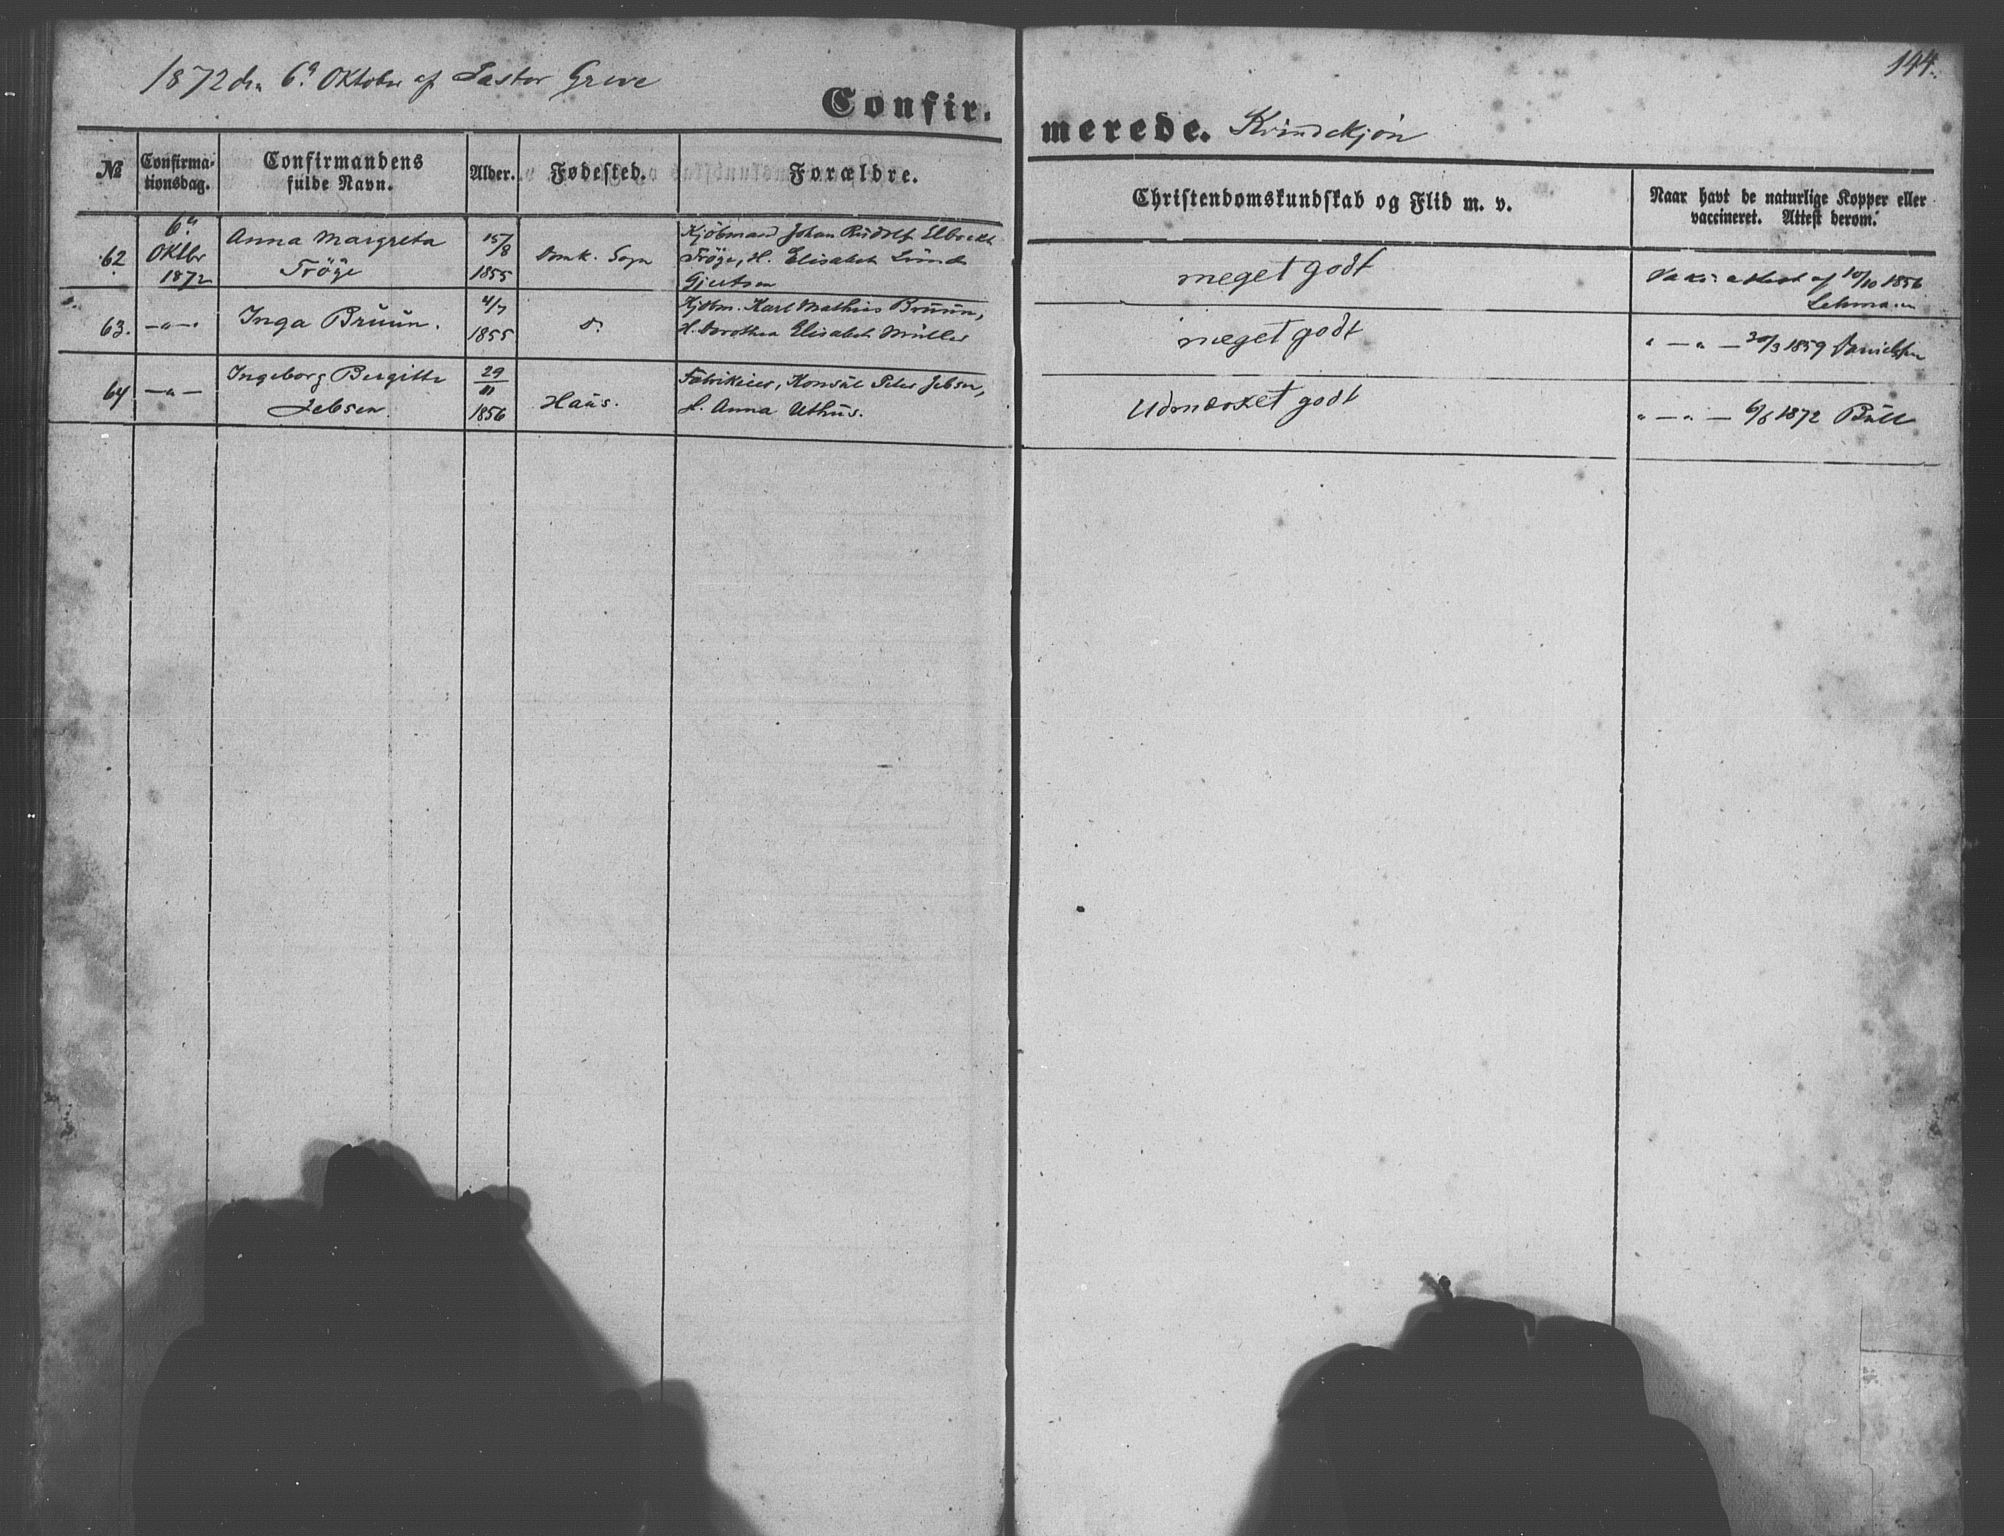 144.
1872 den 6te Oktober af Pastor Greve
Confir-
merede. Kvindekjøn
№
Confirma-
tionsdag.
Confirmandens
fulde Navn.
Alder.
Fødested.
Forældre.
Christendomskundskab og Flid m. v.
Naar havt de naturlige Kopper eller
vaccineret. Attest derom.
62
6te
Oktbr
1872
Anna Margreta
Tröge
15/8
1855
Domk. Sogn
Kjøbmand Johan Rudolf
Tröge, H. Elisabeth
Gjertsen
meget godt
Vaks. attest af 10/10 1856
Lehmann
63.
—"—
Inga Bruun.
4/7
1855
do
Kjøbm. Karl Mathias Bruun,
H. Dorothea Elisabeth Müller
meget godt
" — " — 30/3 1859 Danielssen
64
—"—
Ingeborg Bergitte
Jebsen.
29/11
1856
Haus.
Fabrikeier, Konsul Peter Jebsen,
H. Anna Uthus.
Udmærket godt
" — " — 6/6 1872 Bull